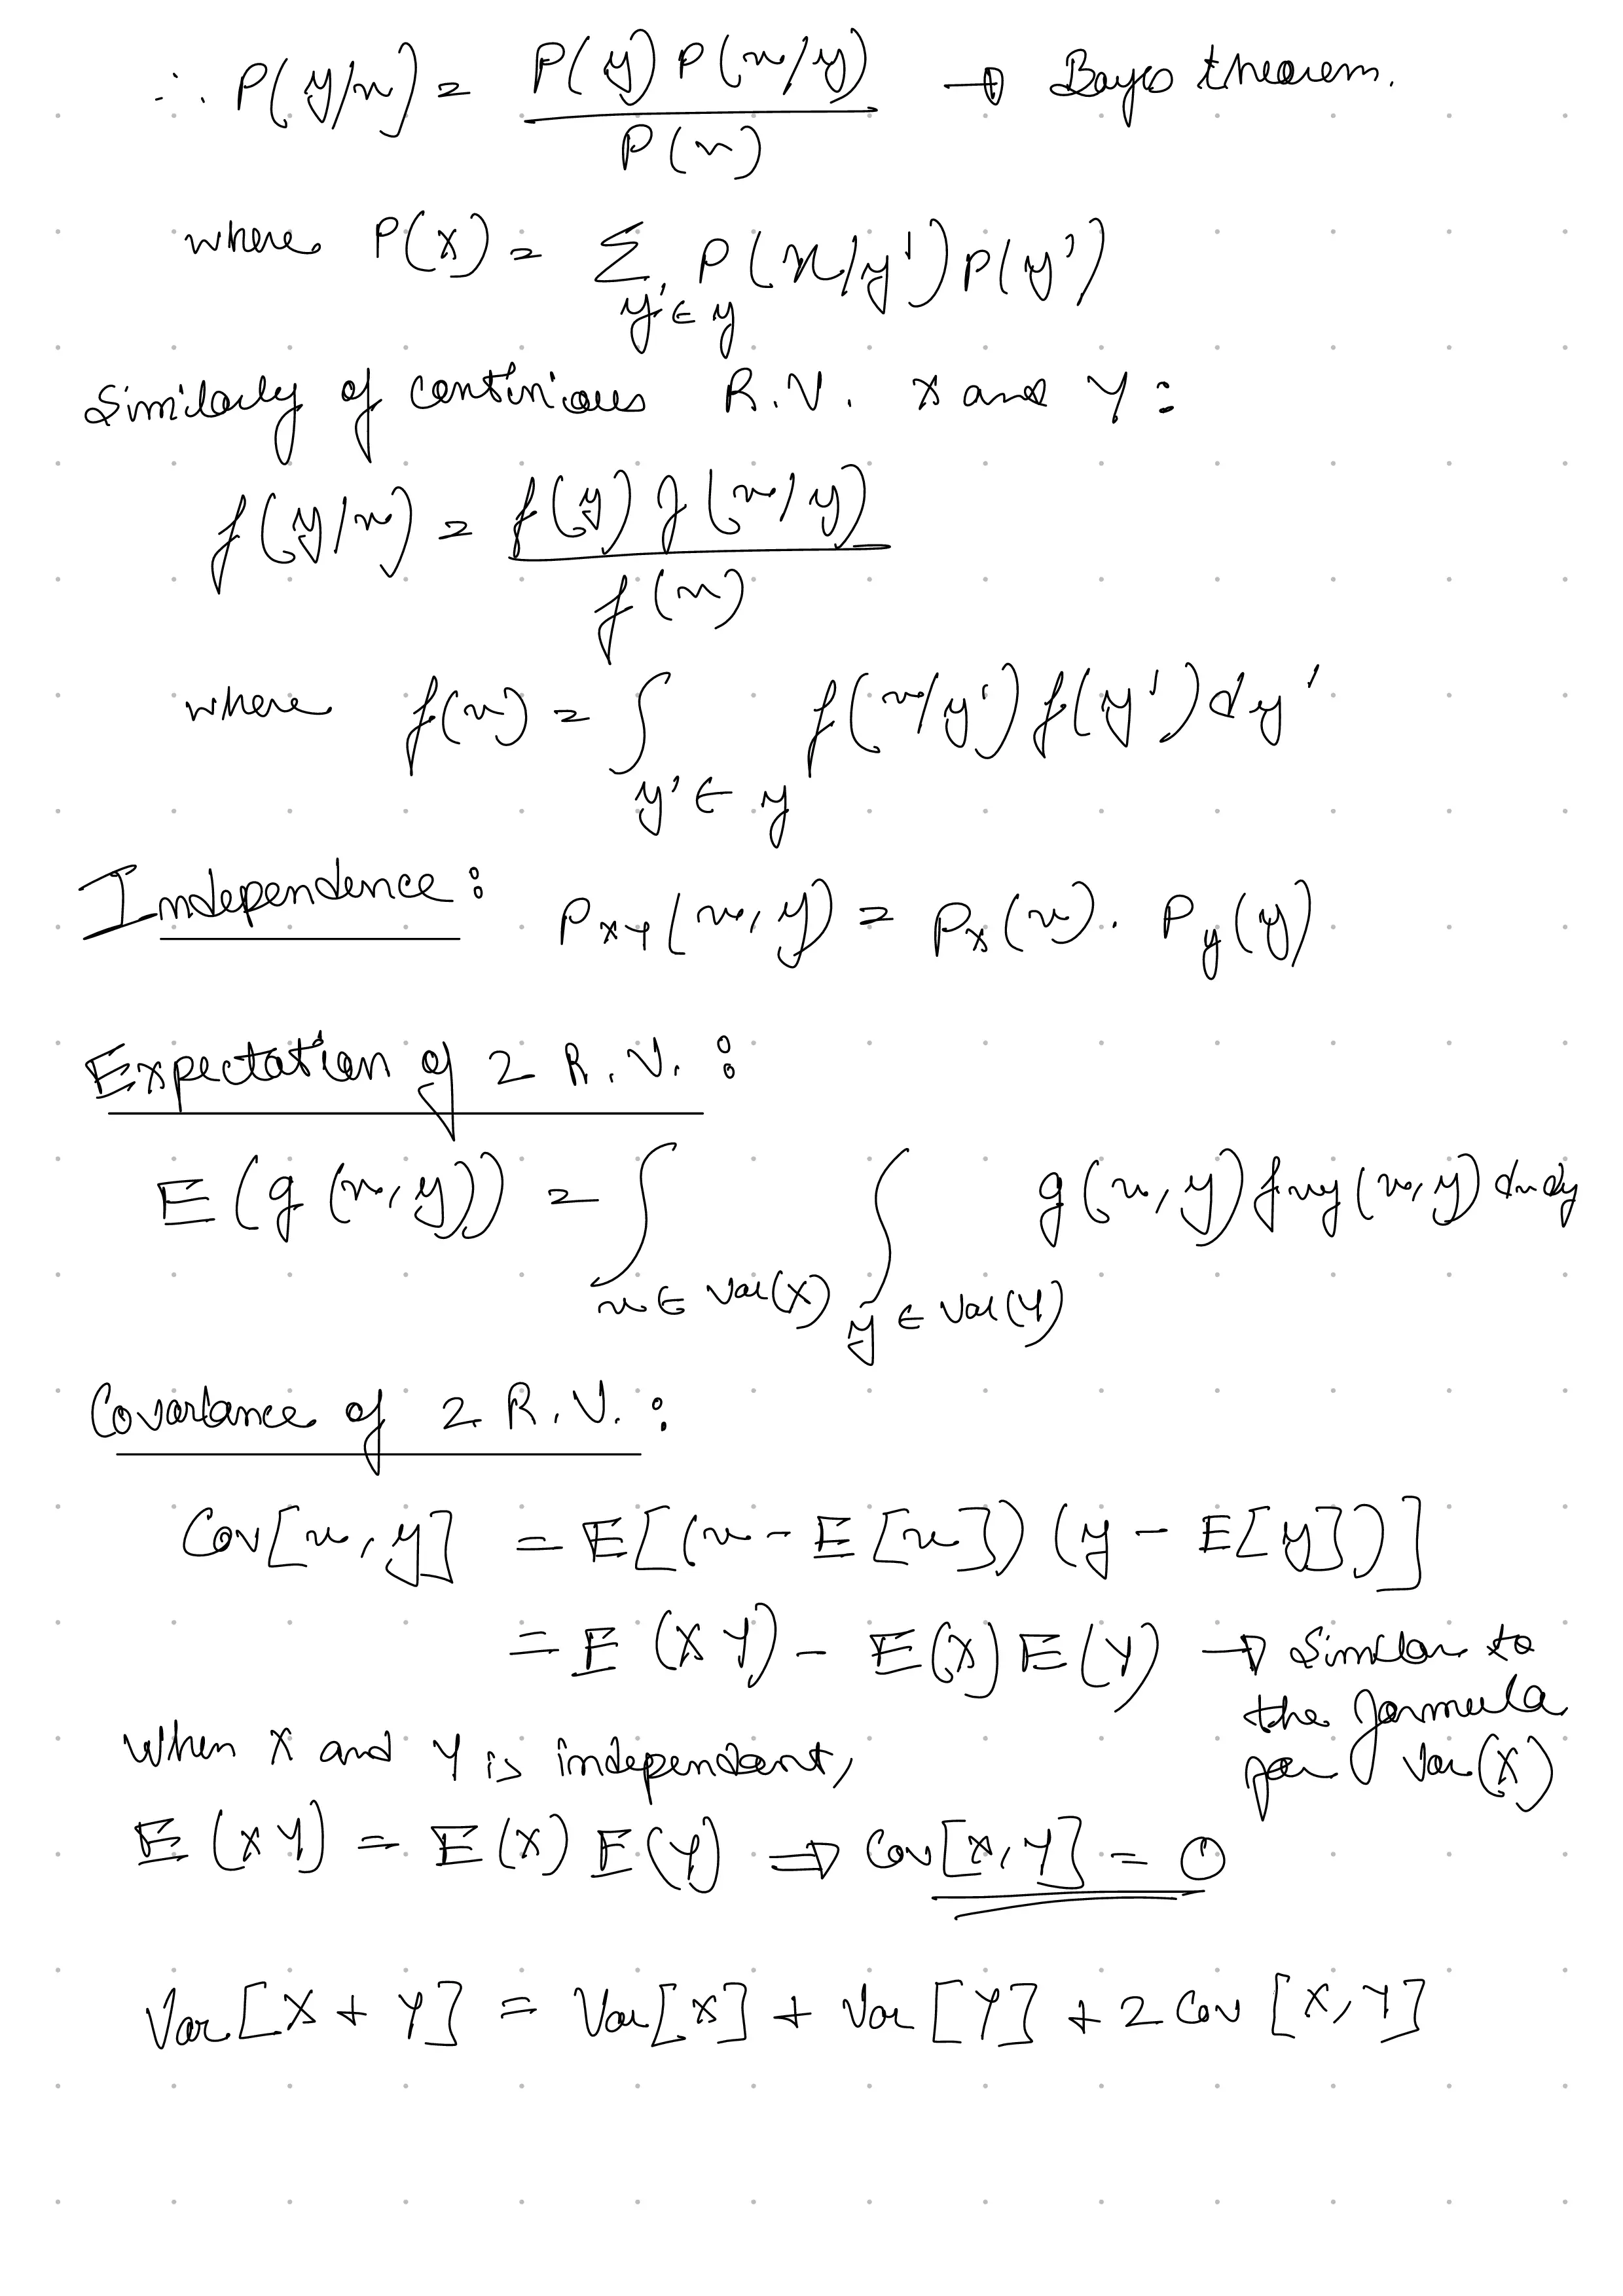 ∴ P(y/x) = P(y) P(x/y) / P(x) → Bayes theorem.
where P(X) = Σ y'∈y P(x/y') P(y')
Similarly of continious R.V. X and Y :
f(y/x) = f(y) f(x/y) / f(x)
where f(x) = ∫ y'∈y f(x/y') f(y') dy'
Independence : P_XY(x,y) = P_X(x) . P_y(y)
Expectation of 2 R.V. :
E(g(x,y)) = ∫ x∈Val(X) ∫ y∈Val(Y) g(x,y) f_xy(x,y) dx dy
Covariance of 2 R.V. :
Cov[x,y] = E[(x - E[x]) (y - E[y])]
= E(XY) - E(X) E(Y) → Similar to
the formula
for Var(X)
When X and Y is independent,
E(XY) = E(X) E(Y) ⇒ Cov[X,Y] = 0
Var[X + Y] = Var[X] + Var[Y] + 2 Cov[X,Y]